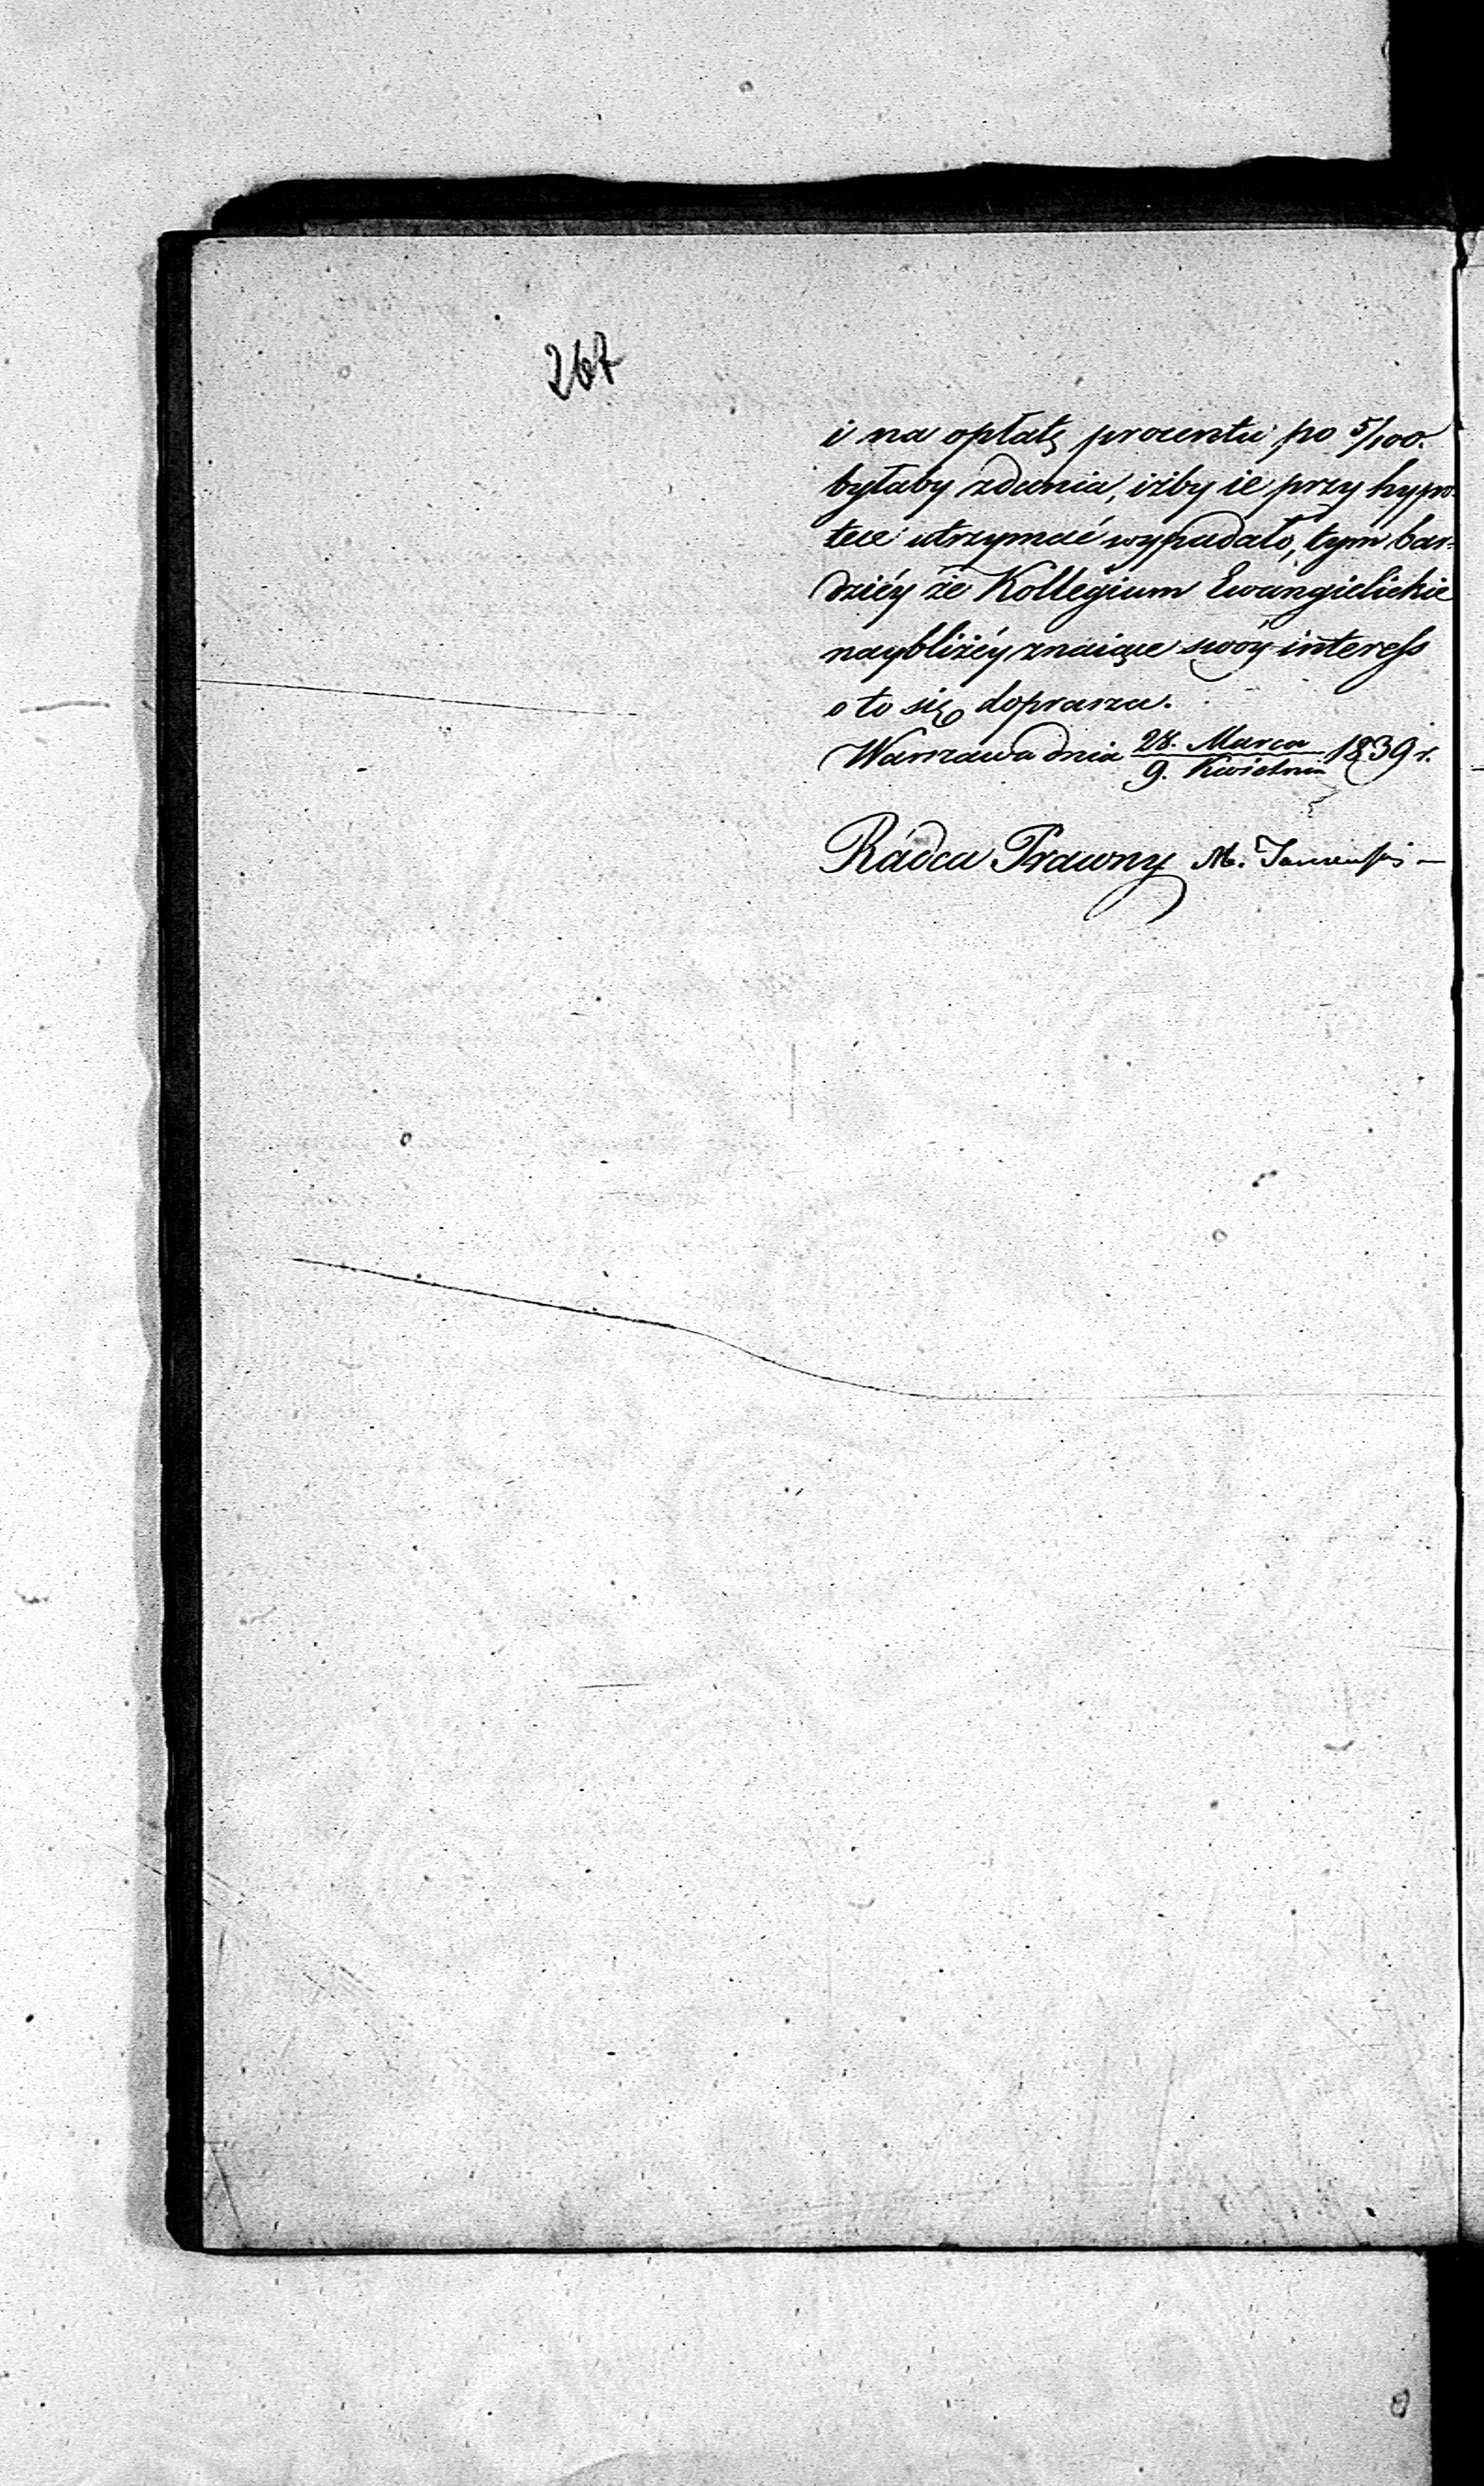 267
i na opłatę procentu po 5/100.
byłaby zdania, iżby ie przy hypo-
tece utrzymać wypadało, tym bar-
dziéy że Kollegium Ewangielickie
naybliżéy znaiące swóy interess
o to się doprasza.
Warszawa dnia 28. Marca / 9. Kwietnia 1839 r.
Radca Prawny M.